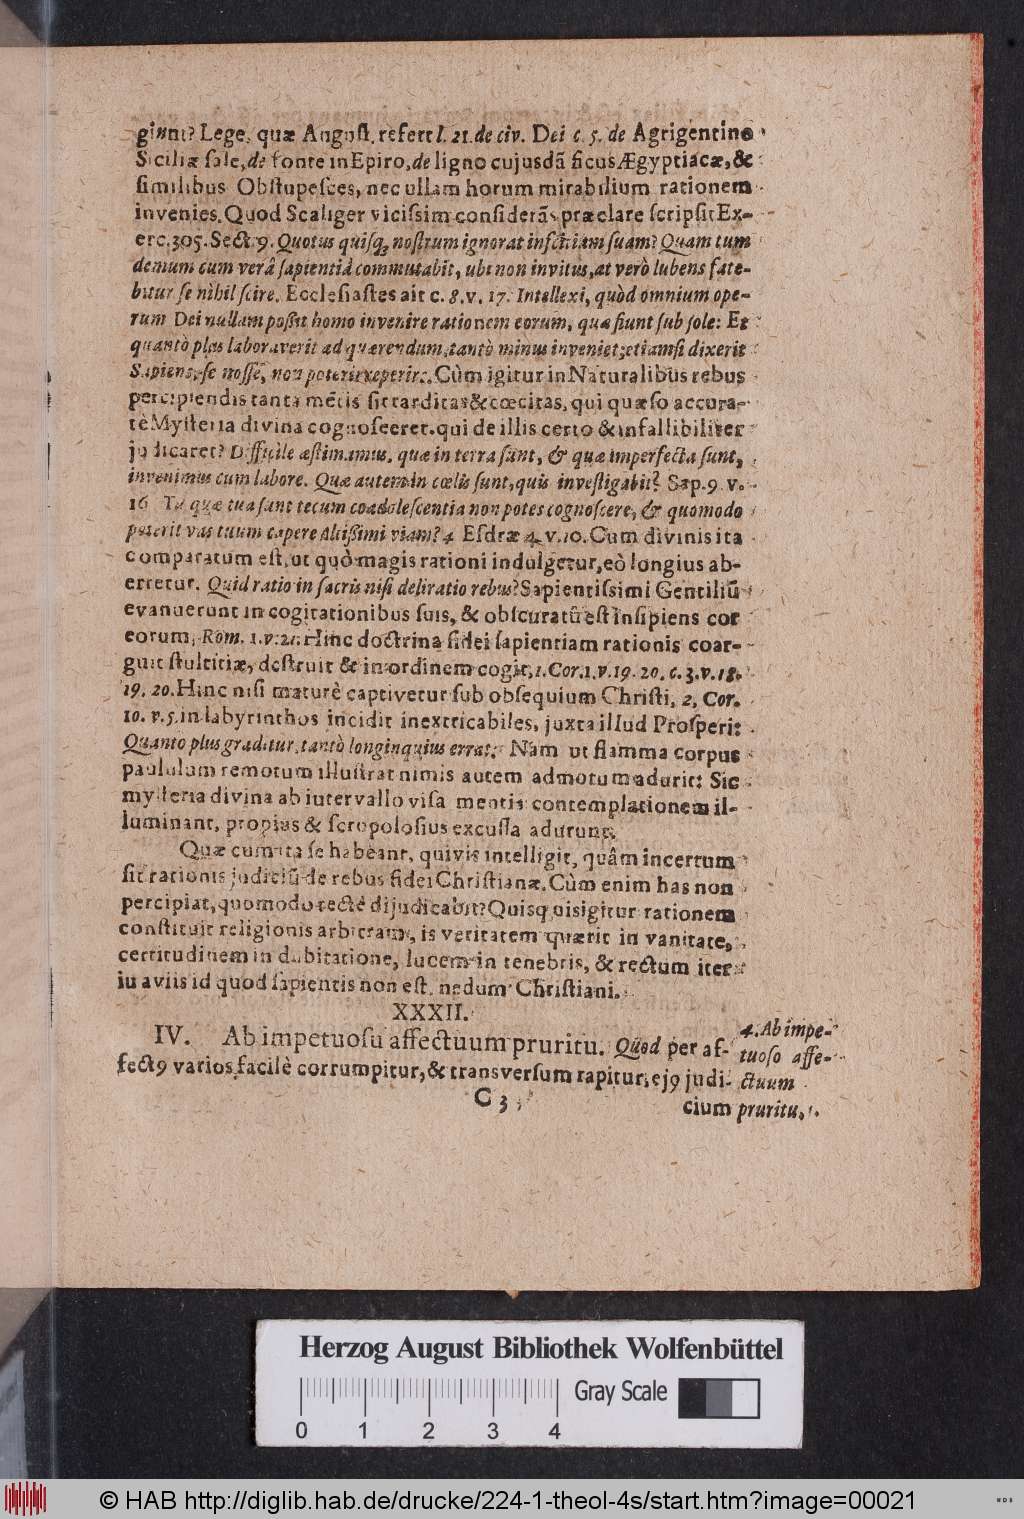 giunt? Lege, quæ August. refert l. 21. de civ. Dei c. 5. de Agrigentino
Siciliæ sale, de fonte in Epiro, de ligno cujusdã ficus Ægyptiacæ, &
similibus Obstupesces, nec ullam horum mirabilium rationem
invenies. Quod Scaliger vicissim considerãs præclare scripsit Ex-
erc. 305. Sect. 9. Quotus quisq; nostrum ignorat inscitiam suam? Quam tum
demum cum verâ sapientiâ commutabit, ubi non invitus, at verò lubens fate-
bitur se nihil scire. Ecclesiastes ait c. 8. v. 17. Intellexi, quòd omnium ope-
rum Dei nullam possit homo invenire rationem eorum, quæ fiunt sub sole: Et
quantò plus laboraverit ad quærendum, tantò minus inveniet: etiamsi dixerit
Sapiens, se nosse, non poterit reperire. Cùm igitur in Naturalibus rebus
percipiendis tanta mẽtis sit tarditas & cœcitas, qui quæso accura-
tè Mysteria divina cognosceret. qui de illis certo & infallibiliter
judicaret? Difficile æstimamus, quæ in terra sunt, & quæ imperfecta sunt,
invenimus cum labore. Quæ autem in cœlis sunt, quis investigabit? Sap. 9. v.
16 Tu quæ tua sunt tecum coadolescentia non potes cognoscere, & quomodo
poterit vas tuum capere Altissimi viam? 4 Esdræ 4. v. 10. Cum divinis ita
comparatum est, ut quò magis rationi indulgetur, eò longius ab-
erretur. Quid ratio in sacris nisi deliratio rebus? Sapientissimi Gentiliũ
evanuerunt in cogitationibus suis, & obscuratũ est insipiens cor
eorum, Rom. 1. v. 21. Hinc doctrina fidei sapientiam rationis coar-
guit stultitiæ, destruit & in ordinem cogit, 1. Cor. 1. v. 19. 20. c. 3. v. 18.
19. 20. Hinc nisi maturè captivetur sub obsequium Christi, 2. Cor.
10. v. 5. in labyrinthos incidit inextricabiles, juxta illud Prosperi:
Quanto plus graditur, tantò longinquius errat. Nam ut flamma corpus
paululum remotum illustrat nimis autem admotum adurit: Sic
mysteria divina ab intervallo visa mentis contemplationem il-
luminant, propius & scropolosius excussa adurunt.
Quæ cum ita se habeant, quivis intelligit, quâm incertum
sit rationis judiciũ de rebus fidei Christianæ. Cùm enim has non
percipiat, quomodo rectè dijudicabit? Quisquis igitur rationem
constituit religionis arbitram, is veritatem quærit in vanitate,
certitudinem in dubitatione, lucem in tenebris, & rectum iter
iu aviis id quod sapientis non est, nedum Christiani.
XXXII.
IV. Ab impetuosu affectuum pruritu. Quod per af-
fectꝰ varios facilè corrumpitur, & transversum rapitur, ejꝰ judi-
4. Ab impe-
tuoso affe-
ctuum
pruritu.
C 3
cium
Herzog August Bibliothek Wolfenbüttel
Gray Scale
0 1 2 3 4
© HAB http://diglib.hab.de/drucke/224-1-theol-4s/start.htm?image=00021
WDB